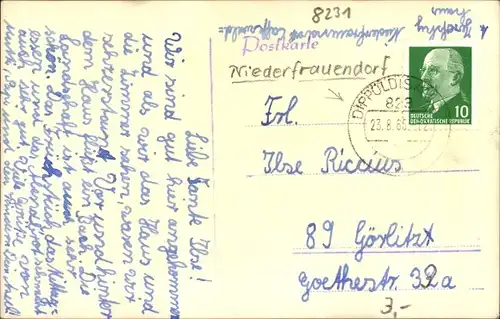 8231
Postkarte
Niederfrauendorf
DIPPOLDISWALDE
823
23.8.66
10
DEUTSCHE
DEMOKRATISCHE REPUBLIK
Frl.
Ilse Riccius
89 Görlitz
Goethestr. 32a
3,-
Liebe Tante Ilse!
Wir sind gut hier angekommen
und als wir das Haus und
die Zimmer sahen, waren wir
sehr erstaunt. Vor und hinter
dem Haus fließt ein Bach. Die
Landschaft ist auch sehr
schön. Das Frühstück, das Mittag=
essen und das Abendbrot schmeckt
auch sehr gut. Viele Grüße von